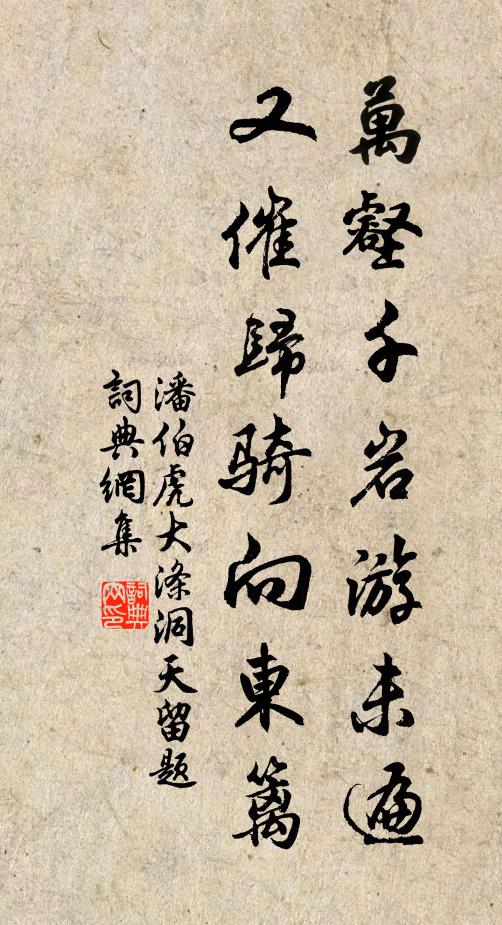 萬壑千岩游未遍
又催歸騎向東籬
潘伯虎大滌洞天留題
詞典網集
詞典網印